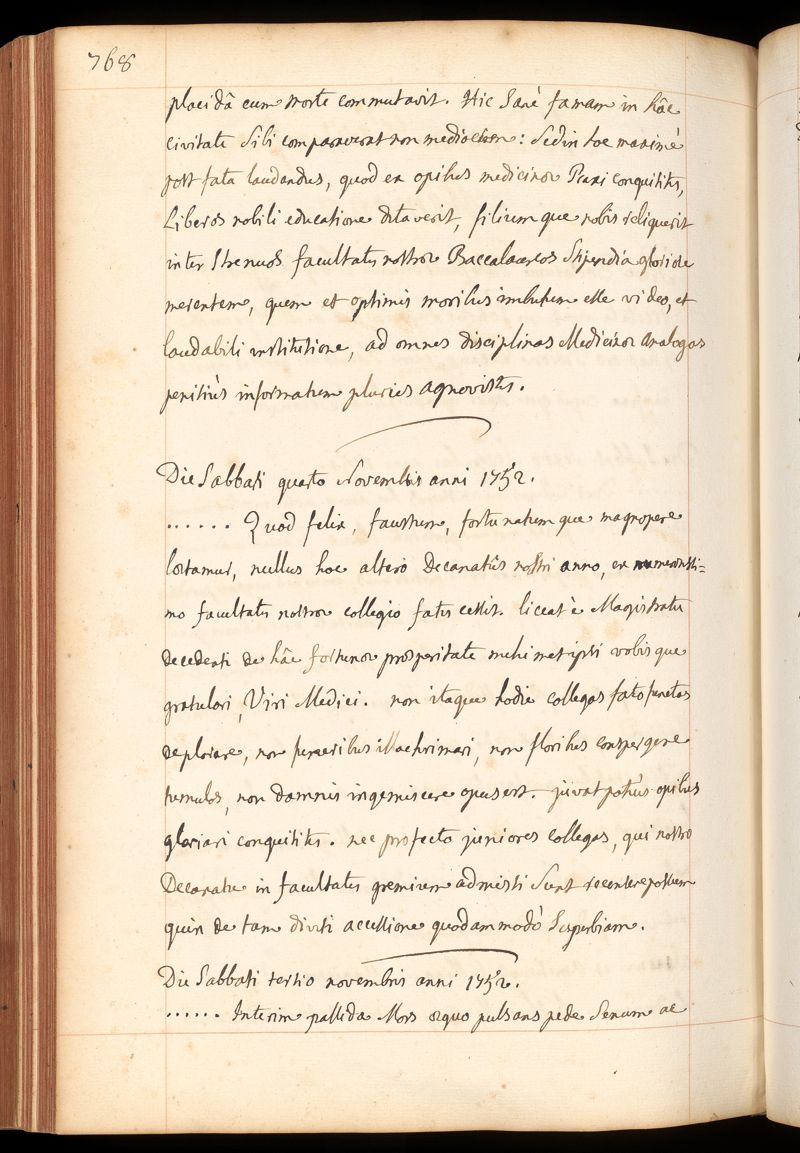 768
placidâ cum morte commutavit. Hic Sanè famam in hâc
civitate Sibi comparaverat non mediocrem: Sed in hoc maximè
post fata laudandus, quod ex opibus medicinæ Praxi conquisitis,
Liberos nobili educatione ditaverit, filiumque nobis reliquerit
inter Strenuos facultatis nostræ Baccalaureos Stipendia gloriose
merentem, quem et optimis moribus imbutum esse video, et
laudabili institutione, ad omnes disciplinas Medicinæ analogas
penitiùs informatum pluries agnovistis.
Die Sabbati quarto Novembris anni 1752.
...... Quod felix, faustum, fortunatumque magnopere
lœtamur, nullus hoc altero Decanatûs nostri anno, ex numerosissi=
mo facultatis nostræ collegio fatis cessit. liceat è Magistratu
decedenti de hâc fortunæ prosperitate mihimetipsi vobisque
gratulari, Viri Medici. non itaque hodie collegas fato functos
deplorare, non funeribus illachrimari, non floribus conspergere
tumulos, non damnis ingemiscere opus est. juvat potiùs opibus
gloriari conquisitis. nec profecto juniores collegas, qui nostro
Decanatu in facultatis gremium admissi Sunt recensere possum
quin de tam diviti accessione quodammodò Superbiam.
Die Sabbati tertio novembris anni 1752.
...... Interim pallida Mors æquo pulsans pede Senum ac